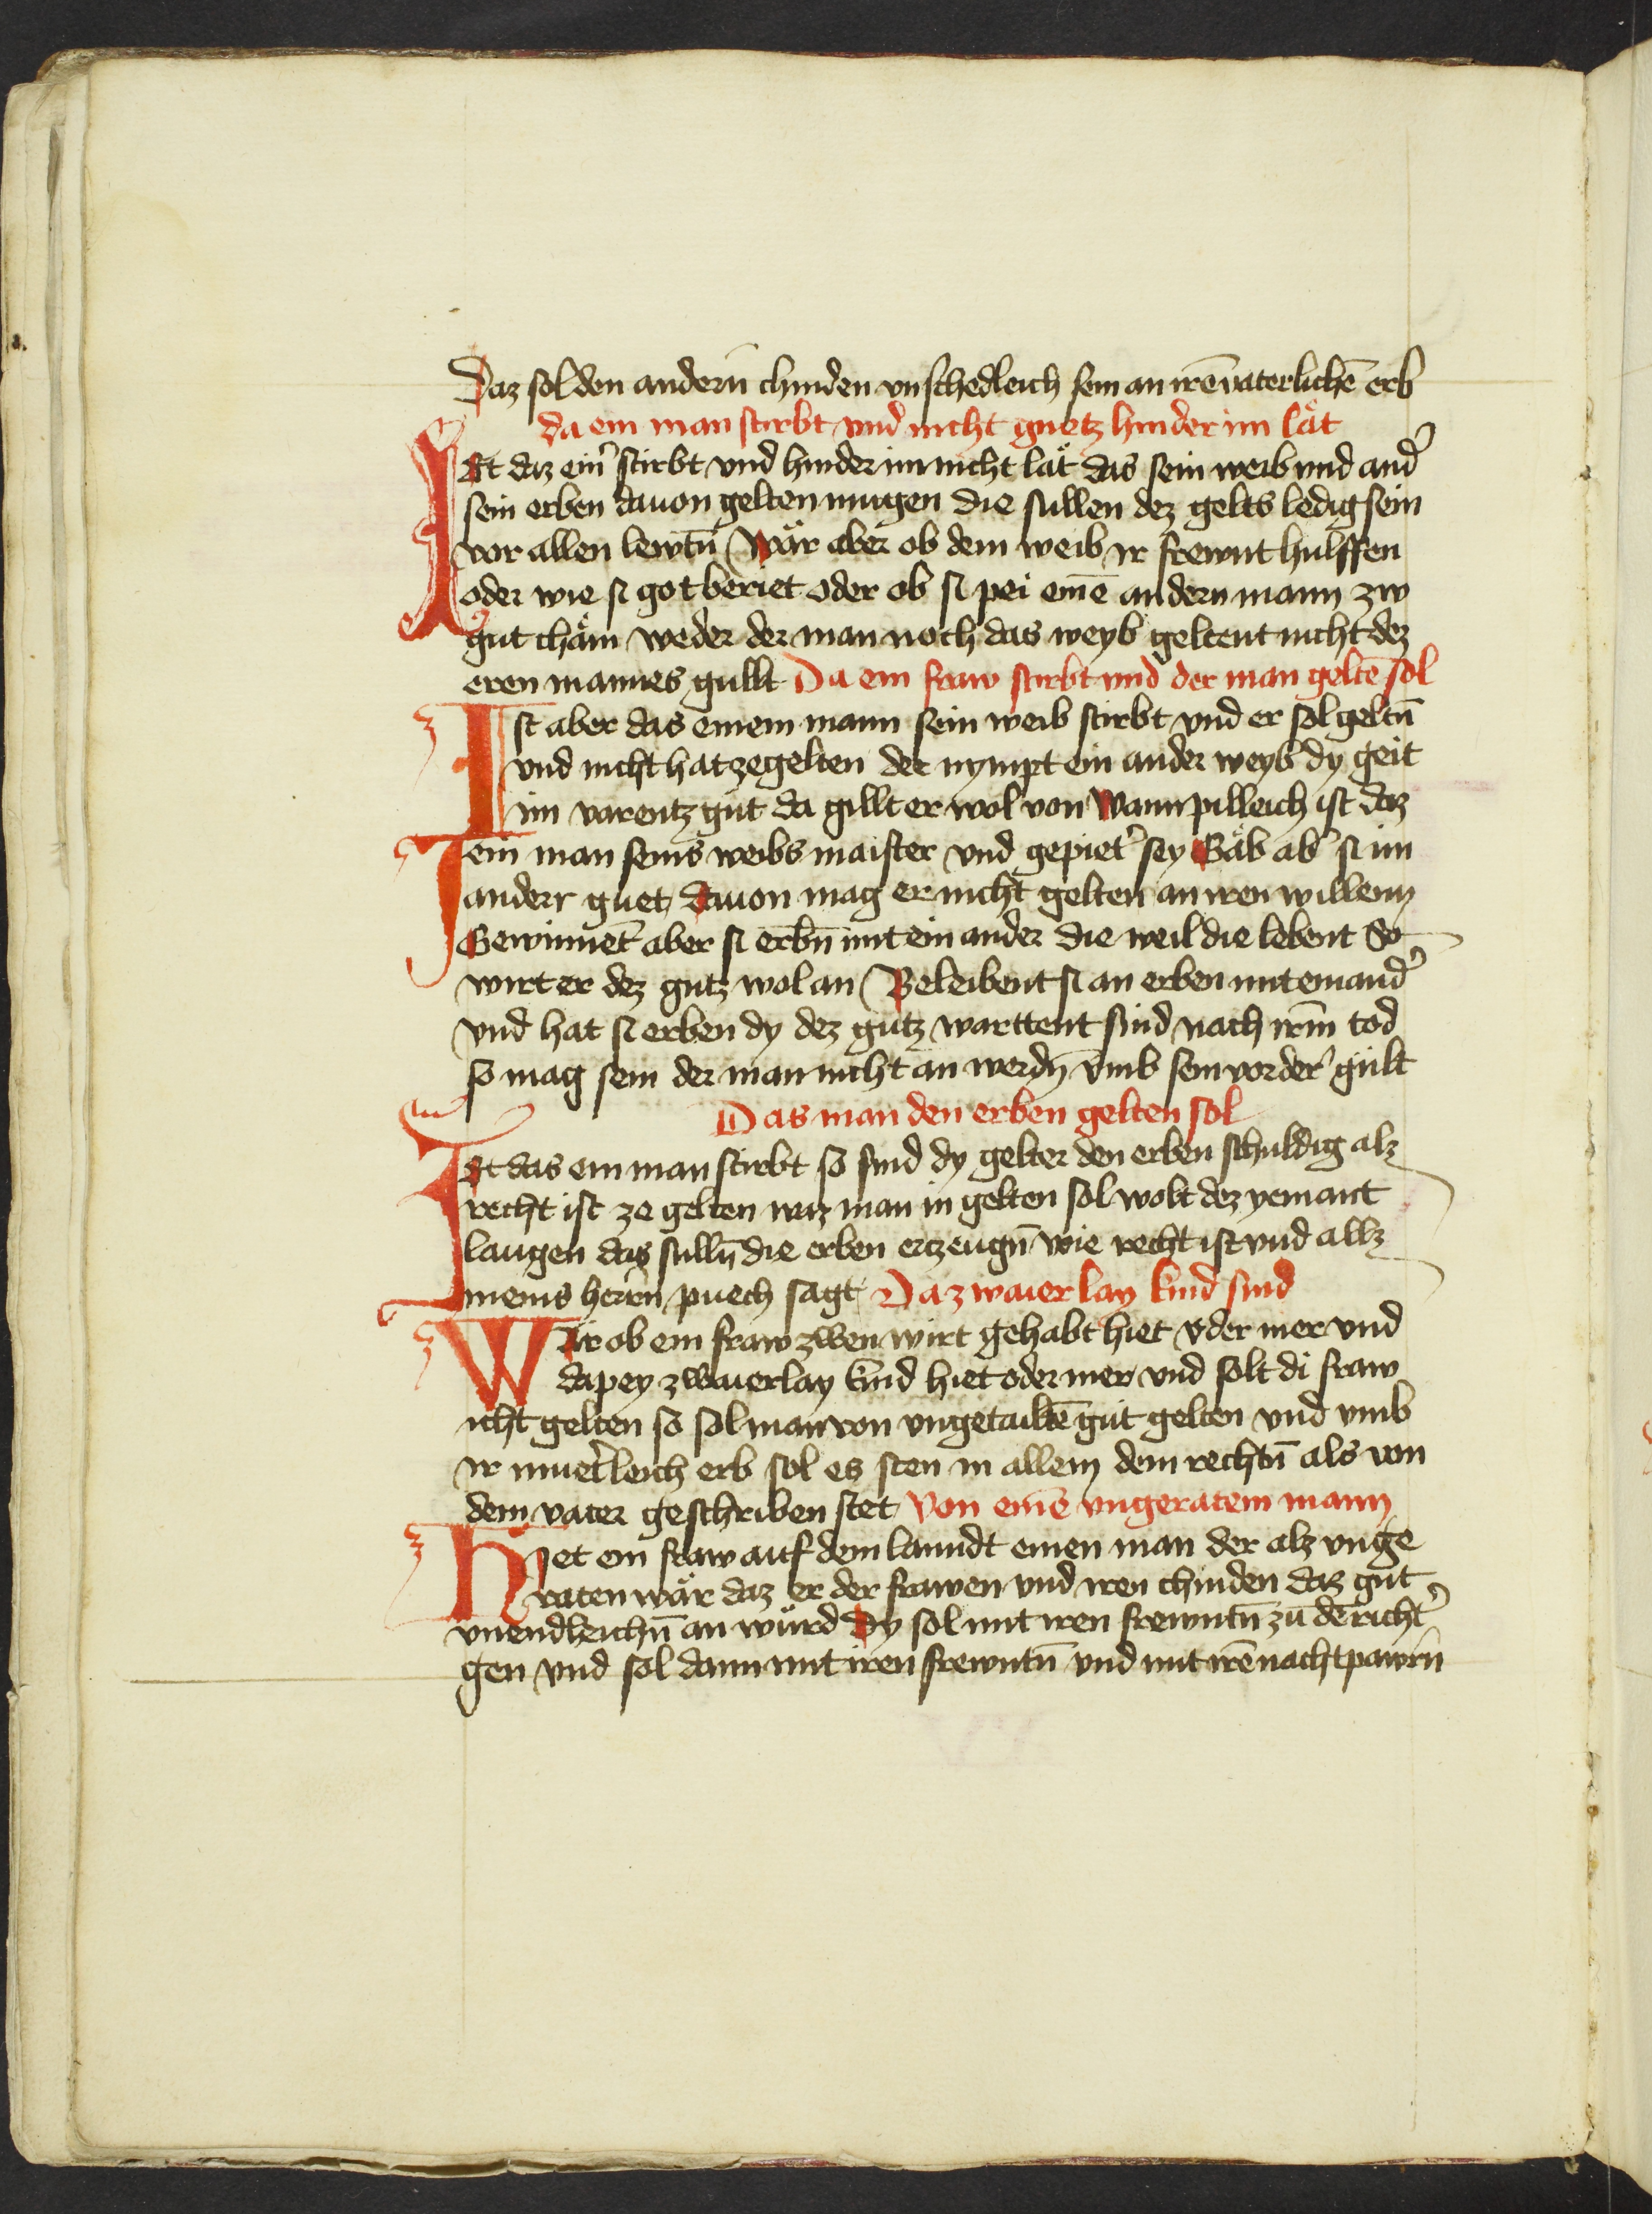 Daz sol den andern̄ chinden vnschedleich sein an irē vaterlichē erb
da ein man stirbt vnd nicht guetz hinder im lät
Ist daz ein᷑ stirbt vnd hinder im nicht lät das sein weib vnd and᷑
sein erben dauon gelten mugen die sullen dez gelts ledig sein
vor allen lewtn̄ Wär aber ob dem weib ir frewnt hulffen
oder wie si got beriet oder ob si pei einē andern mann zw
gut chäm weder der man noch das weyb geltent nicht dez
eren mannes gullt Da ein fraw stirbt vnd der man geltē sol
Ist aber das einem mann sein weib stirbt vnd er sol geltn̄
vnd nicht hat ze gelten der nympt ein ander weyb dy geit
im varentz gut da gillt er wol von Wann pilleich ist daz
ein man seins weibs maister vnd gepiet᷑ sey Gäb ab᷑ si im
anderr guet dauon mag er nicht gelten an iren willenn
Gewinnet aber si erbn̄ mit ein ander die weil die lebent So
wirt er dez gutz wol an Beleibent si an erben mit einand᷑
vnd hat si erben dy dez gutz warttent sind nach irm̄ tod
so mag sein der man nicht an werdn̄ vmb sein vorder᷑ gült
Das man den erben gelten sol
Ist das ein man stirbt so sind dy gelter den erben schuldig alz
recht ist ze gelten waz man in gelten sol wolt dez yemant
laugen das sulln̄ die erben erzeugn̄ wie recht ist vnd allz
meins herrn̄ puech sagt Da zwaier lay kind sind
Wär ob ein fraw zwen wirt gehabt hiet oder mer vnd
da pey zwaierlay kind hiet oder mer vnd solt di fraw
icht gelten so sol man von vngetailtē gut gelten vnd vmb
ir muet᷑leich erb sol es sten in allem dem rechtn̄ als von
dem vater geschriben stet Von einē vngeratem mann
Hiet ein fraw auf dem lanndt einen man der alz vnge
raten wär daz er der frawen vnd iren chinden daz gut
vnendleichn̄ an würd Dy sol mit iren frewntn̄ zu dē richt᷑
gen vnd sol dann mit iren frewntn̄ vnd mit irē nachtpawrn̄